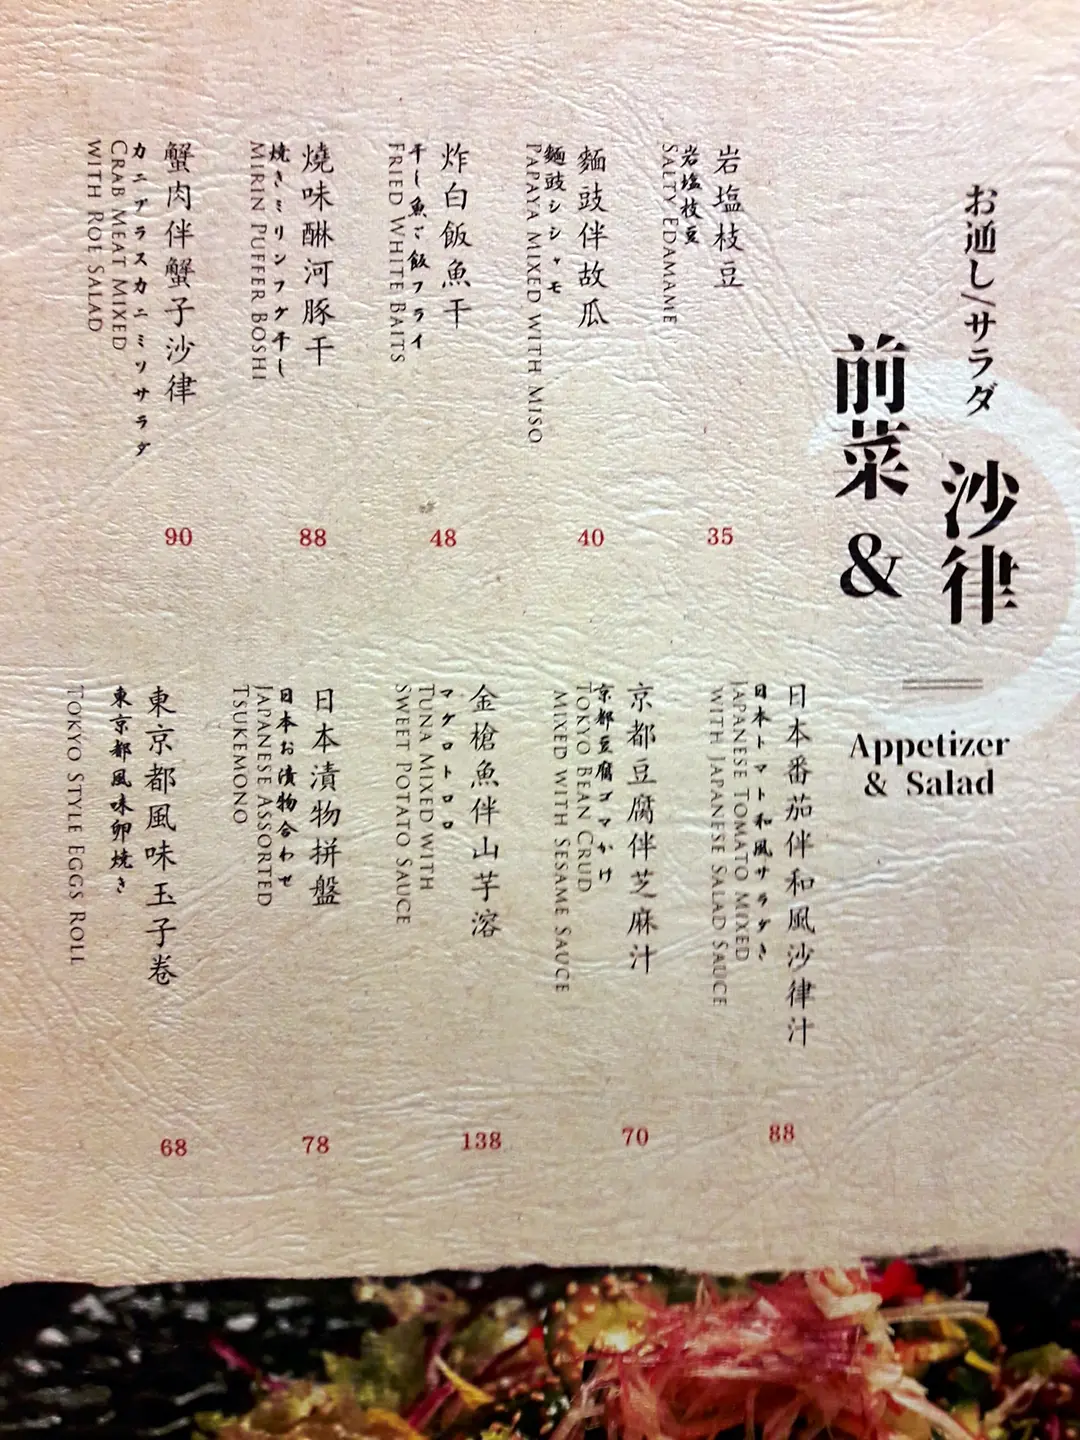 お通し/サラダ
前菜 &
沙律
Appetizer
& Salad
岩塩枝豆
岩塩枝豆
SALTY EDAMAME
35
麵豉伴故瓜
麵豉シシャモ
PAPAYA MIXED WITH MISO
40
炸白飯魚干
干し魚ご飯フライ
FRIED WHITE BAITS
48
燒味醂河豚干
焼きミリンフグ干し
MIRIN PUFFER BOSHI
88
蟹肉伴蟹子沙律
カニプラスカニミソサラダ
CRAB MEAT MIXED
WITH ROE SALAD
90
日本番茄伴和風沙律汁
日本トマト和風サラダき
JAPANESE TOMATO MIXED
WITH JAPANESE SALAD SAUCE
88
京都豆腐伴芝麻汁
京都豆腐ゴマかけ
TOKYO BEAN CRUD
MIXED WITH SESAME SAUCE
70
金槍魚伴山芋溶
マグロトロロ
TUNA MIXED WITH
SWEET POTATO SAUCE
138
日本漬物拼盤
日本お漬物合わせ
JAPANESE ASSORTED
TSUKEMONO
78
東京都風味玉子卷
東京都風味卵焼き
TOKYO STYLE EGGS ROLL
68